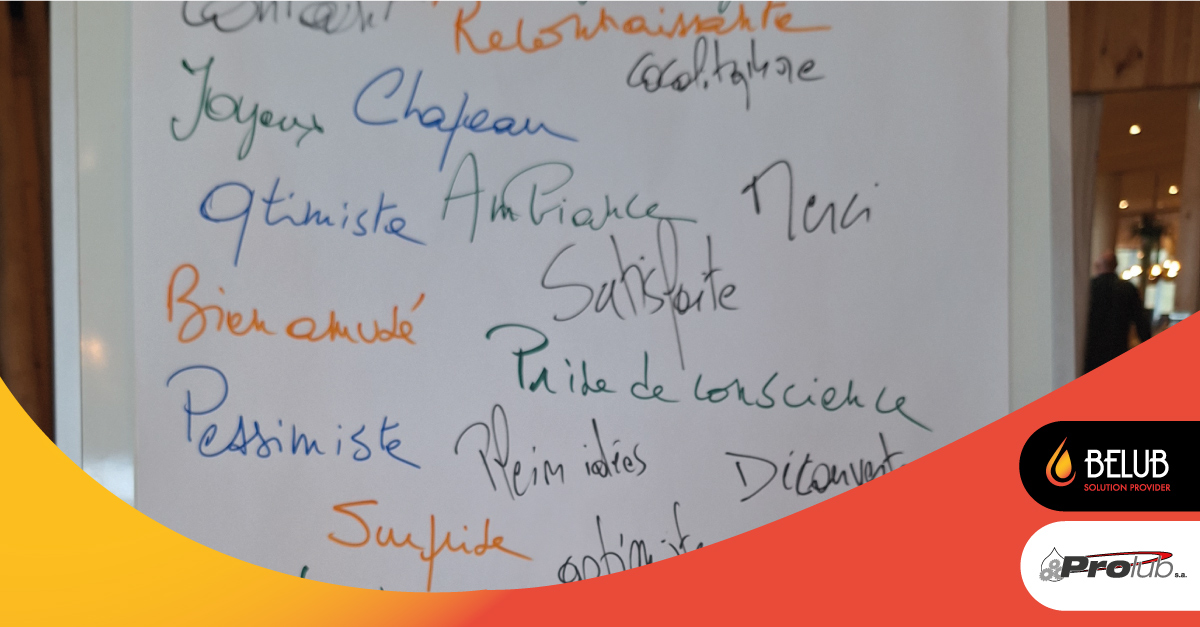 Reconnaissante
Joyeux Chapeau
Optimiste Ambiance Merci
Satisfaite
Bien amusé
Prise de conscience
Pessimiste
Plein idées
Surprise optimiste
BELUB
SOLUTION PROVIDER
Prolub s.a.